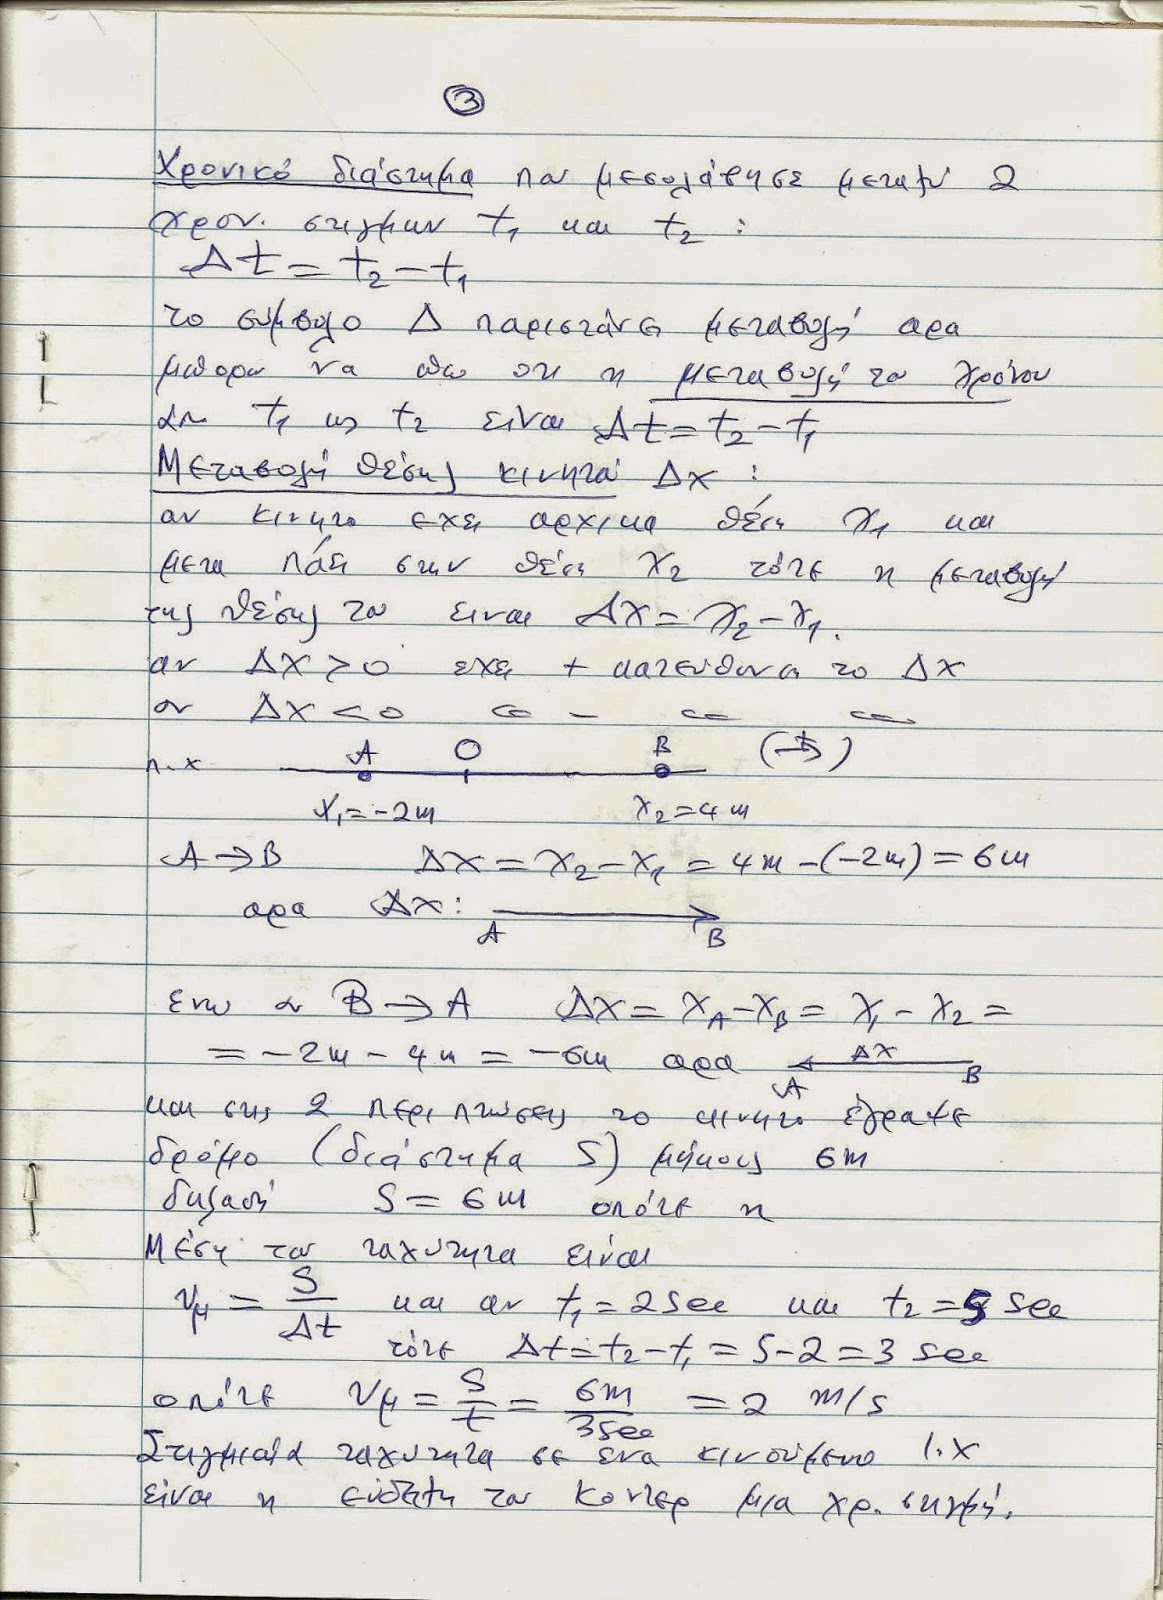 3
Χρονικό διάστημα που μεσολάβησε μεταξύ 2
χρον. στιγμων t₁ και t₂ :
Δt = t₂ - t₁
το σύμβολο Δ παριστάνει μεταβολή αρα
μπορω να πω οτι η μεταβολή του χρόνου
απ t₁ ως t₂ είναι Δt = t₂ - t₁
Μεταβολή θέσης κινητού Δx :
αν κινητο εχει αρχικα θέση x₁ και
μετα πάει στην θέση x₂ τότε η μεταβολή
της θέσης του ειναι Δx = x₂ - x₁.
αν Δx > 0 εχει + κατευθυνση το Δx
αν Δx < 0 « - « «
π.χ A O B (+→)
x₁ = -2m x₂ = 4m
A → B Δx = x₂ - x₁ = 4m - (-2m) = 6m
αρα Δx : A B
ενω αν B → A Δx = x_A - x_B = x₁ - x₂ =
= -2m - 4m = -6m αρα A Δx B
και στις 2 περιπτώσεις το κινητο έγραψε
δρόμο (διάστημα S) μήκους 6m
δηλαδή S = 6m οπότε η
Μέση του ταχυτητα είναι
v_μ = S/Δt και αν t₁ = 2sec και t₂ = 5 sec
τότε Δt = t₂ - t₁ = 5 - 2 = 3 sec
οπότε v_μ = S/t = 6m/3sec = 2 m/s
Στιγμιαία ταχυτητα σε ενα κινούμενο Ι.Χ
είναι η ενδειξη του κοντερ μια χρ. στιγμή.